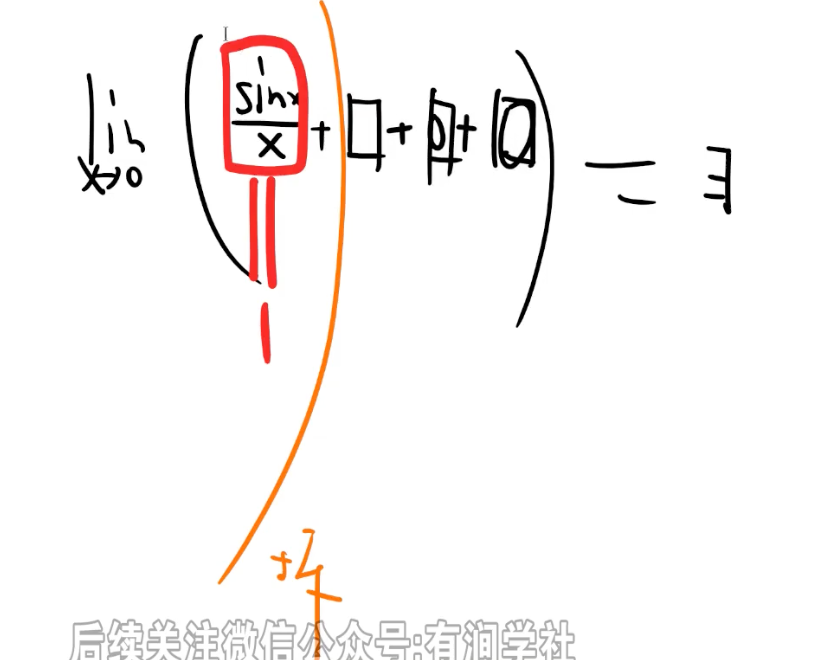 lim x→0 ( sinx / x + □ + □ + □ ) = ∃
1
+
后续关注微信公众号:有涧学社